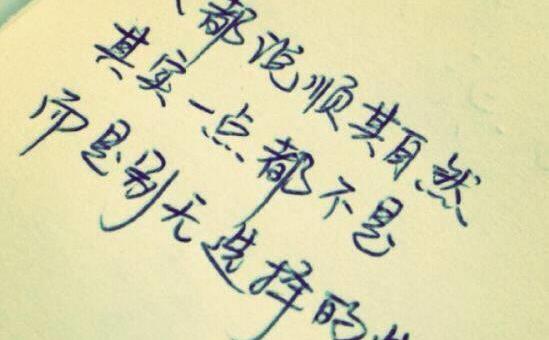 都说顺其自然
其实一点都不是
而是别无选择的